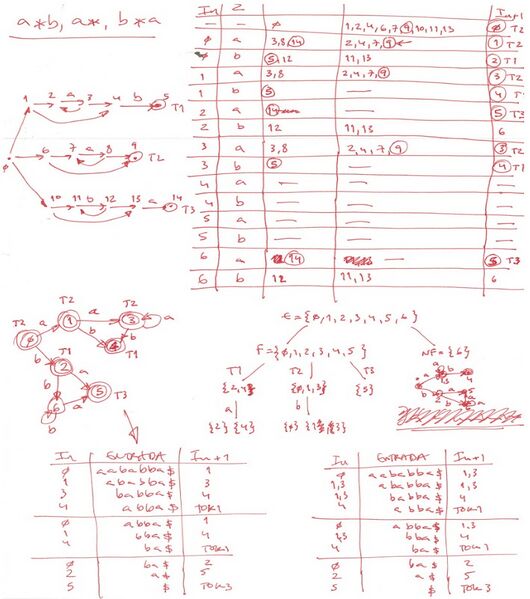 a*b, a*, b*a
1 2 a 3 4 b 5 T1
6 7 a 8 9 T2
ø
10 11 b 12 13 a 14 T3
In Σ In+1
— — ø 1,2,4,6,7,9,10,11,13 ø T2
ø a 3,8,14 2,4,7,9 1 T2
ø b 5,12 11,13 2 T1
1 a 3,8 2,4,7,9 3 T2
1 b 5 — 4 T1
2 a 14 — 5 T3
2 b 12 11,13 6
3 a 3,8 2,4,7,9 3 T2
3 b 5 — 4 T1
4 a — — —
4 b — — —
5 a — — —
5 b — — —
6 a 14 — 5 T3
6 b 12 11,13 6
T2 T2 T2
ø a 1 a 3 a
b b b
T1 4 T1
2 a 5 T3
b 6 a
b
E={ø,1,2,3,4,5,6}
F={ø,1,2,3,4,5} NF={6}
T1 T2 T3
{2,4} {ø,1,3} {5}
a b
{2} {4} {ø} {1,3}
In ENTRADA In+1
ø aababba$ 1
1 ababba$ 3
3 babba$ 4
4 abba$ TOK1
ø abba$ 1
1 bba$ 4
4 ba$ TOK1
ø ba$ 2
2 a$ 5
5 $ TOK3
In ENTRADA In+1
ø aababba$ 1,3
1,3 ababba$ 1,3
1,3 babba$ 4
4 abba$ TOK1
ø abba$ 1,3
1,3 bba$ 4
4 ba$ TOK1
ø ba$ 2
2 a$ 5
5 $ TOK3